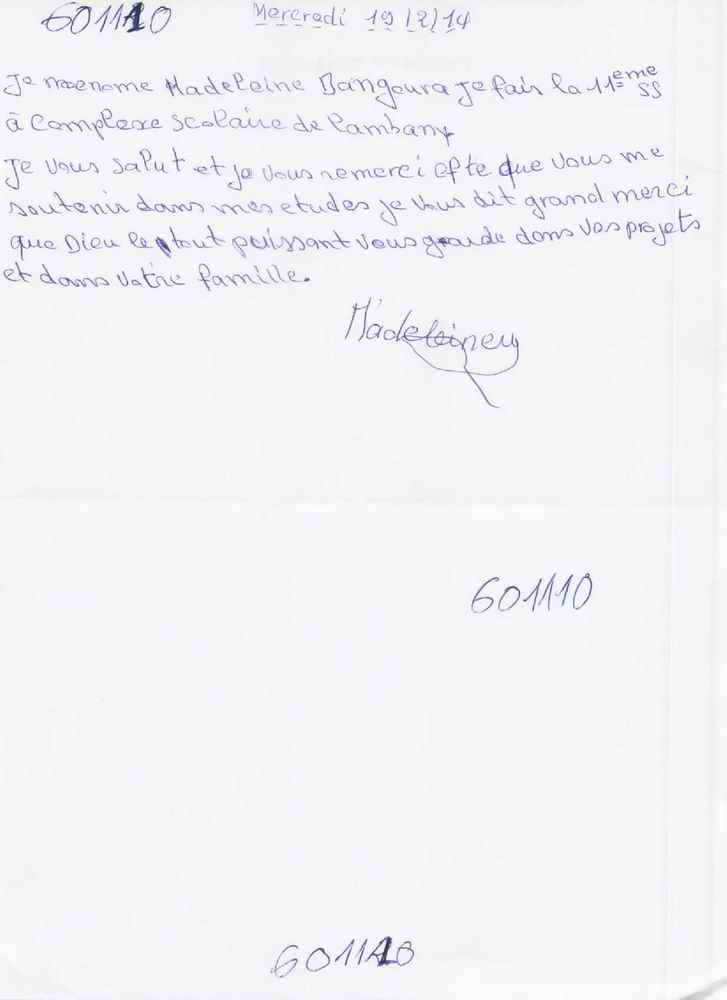 601110 Mercredi 19/2/14
Je menome Madeleine Bangoura je fair la 11ème SS
à Complexe scolaire de Lambany
Je vous salut et je vous remerci efte que vous me
soutenir dans mes etudes je vous dit grand merci
que Dieu le tout puissant vous garde dans vos projets
et dans votre famille.
Madeleiney
601110
601110